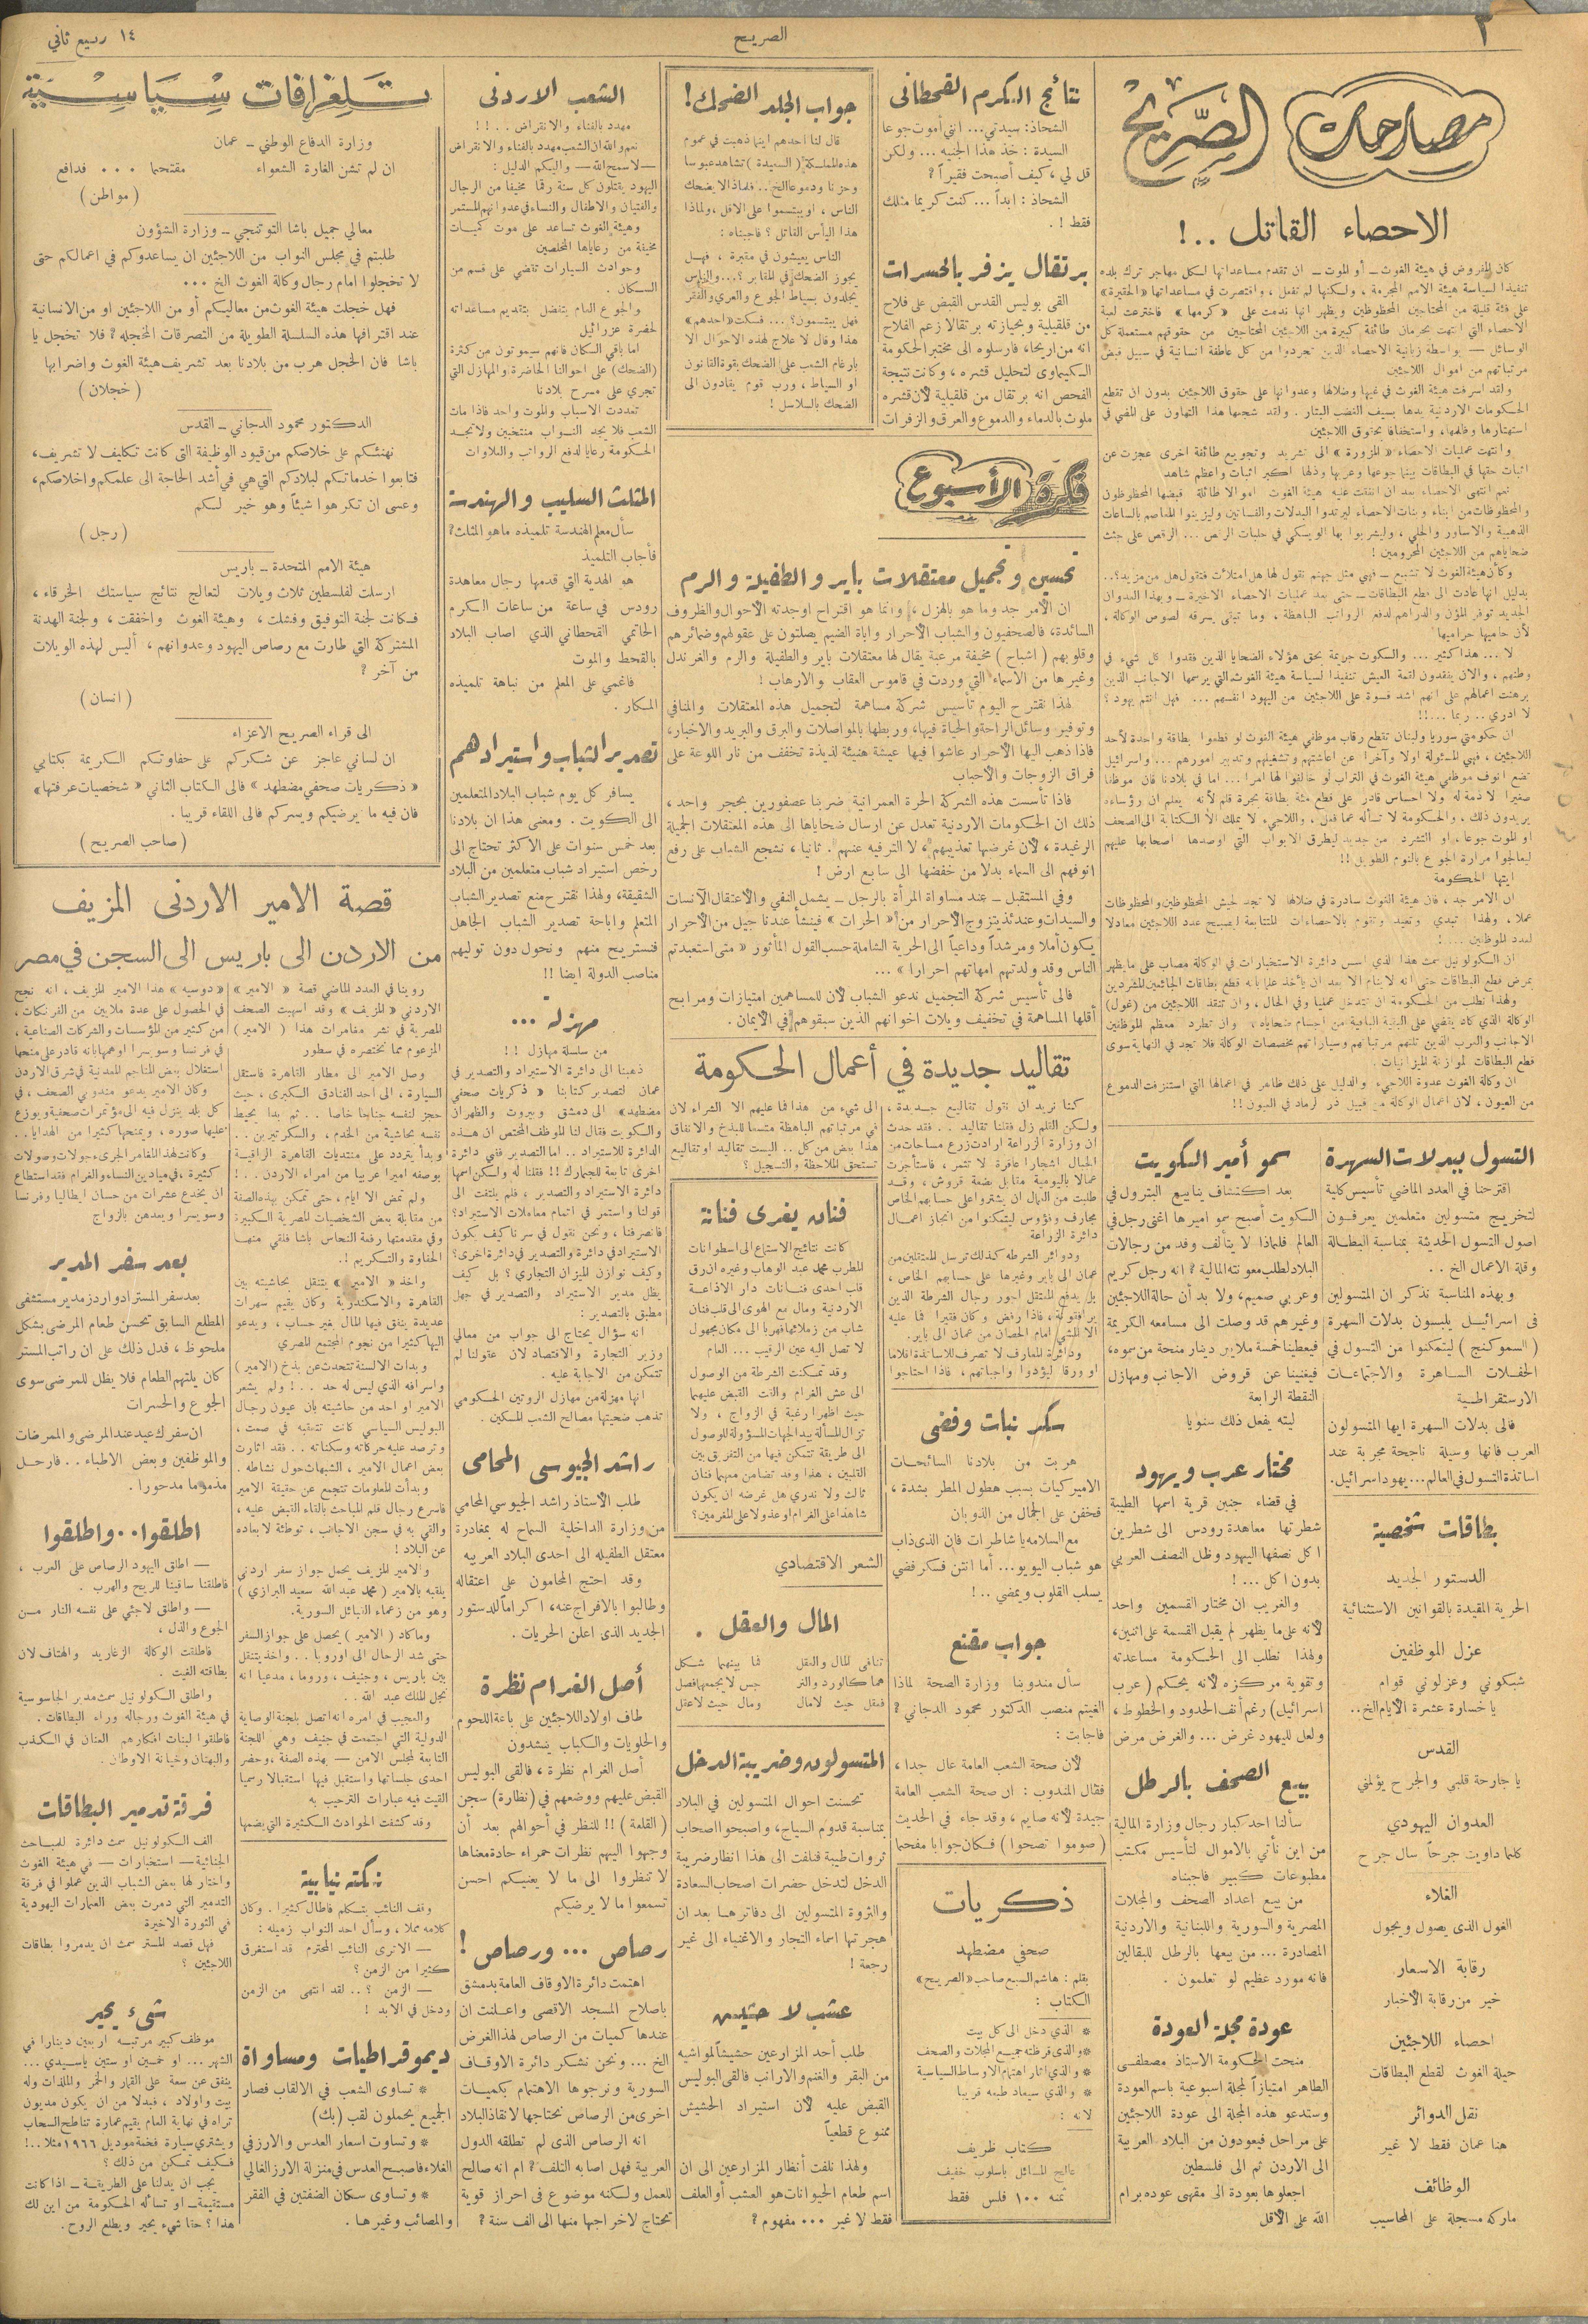 ٣
الصريح
١٤ ربيع ثاني
مصارحات الصريح
الاحصاء القاتل ..!
كان المفروض في هيئة الغوث ــ أو الموت ــ ان تقدم مساعداتها لكل مهاجر ترك بلده
تنفيذا لسياسة هيئة الامم المجرمة ، ولكنها لم تفعل ، واقتصرت في مساعداتها «الحقيرة»
على فئة قليلة من المحتاجين المحظوظين ويظهر انها ندمت على «كرمها» فاخترعت لعبة
الاحصاء التي انتهت بحرمان طائفة كبيرة من اللاجئين المحتاجين من حقوقهم مستعملة كل
الوسائل — بواسطة زبانية الاحصاء الذين تجردوا من كل عاطفة انسانية في سبيل قبض
مرتباتهم من اموال اللاجئين
ولقد اسرفت هيئة الغوث في غيها وضلالها وعدوانها على حقوق اللاجئين بدون ان تقطع
الحكومات الاردنية يدها بسيف الغضب البتار . ولقد شجعها هذا التهاون على المضي في
استهتارها وظلمها، واستخفافا بحقوق اللاجئين
وانتهت عمليات الاحصاء «المزورة» الى تشريد وتجويع طائفة اخرى عجزت عن
اثبات حقها في البطاقات بينما جوعها وعريها وذلها اكبر اثبات واعظم شاهد
نعم انتهى الاحصاء بعد ان انفقت عليه هيئة الغوث اموالا طائلة قبضها المحظوظون
والمحظوظات من ابناء وبنات الاحصاء ليرتدوا البدلات والفساتين وليزينوا المعاصم بالساعات
الذهبية والاساور والحلي ، وليشربوا بها الويسكي في حلبات الرقص ... الرقص على جثث
ضحاياهم من اللاجئين المحرومين !
وكأن هيئة الغوث لا تشبع ــ فهي مثل جهنم نقول لها هل امتلأت فتقول هل من مزيد؟..
بدليل انها عادت الى قطع البطاقات ــ حتى بعد عمليات الاحصاء الاخيرة ــ وبهذا العدوان
الجديد توفر المؤن والدراهم لدفع الرواتب الباهظة ، وما تبقى يسرقه لصوص الوكالة ،
لأن حاميها حراميها
لا ... هذا كثير ... والسكوت جريمة بحق هؤلاء الضحايا الذين فقدوا كل شيء في
وطنهم ، والان يفقدون لقمة العيش تنفيذا لسياسة هيئة الغوث التي يرسمها الاجانب الذين
برهنت اعمالهم على انهم اشد قسوة على اللاجئين من اليهود انفسهم ... فهل انتم يهود ؟
لا ادري .. ربما ...!!
ان حكومتي سوريا ولبنان تقطع رقاب موظفي هيئة الغوث لو قطعوا بطاقة واحدة لأحد
اللاجئين ، فهي المسئولة اولا وآخرا عن اعاشتهم وتشغيلهم وتدبير امورهم ... واسرائيل
تضع انوف موظفي هيئة الغوث في التراب لو خالفوا لها امرا ... اما في بلادنا فان موظفا
صغيرا لا ذمة له ولا احساس قادر على قطع مئة بطاقة بجرة قلم لأنه يعلم ان رؤساءه
يريدون ذلك ، والحكومة لا تسأله عما فعل ، واللاجيء لا يملك الا الكتابة الى الصحف
او الموت جوعا ، او التشرد من جديد ليطرق الابواب التي اوصدها اصحابها عليهم
ليعالجوا مرارة الجوع بالنوم الطويل !!
ايتها الحكومة
ان الامر جد ، فان هيئة الغوث سادرة في ضلالها لا تجد لجيش المحظوظين والمحظوظات
عملا ، ولهذا تبدي وتعيد وتقوم بالاحصاءات المتتابعة ليصبح عدد اللاجئين معادلا
لعدد الموظفين ... !
ان الكولونيل سمث هذا الذي اسس دائرة الاستخبارات في الوكالة مصاب على ما يظهر
بمرض قطع البطاقات حتى انه لا ينام الا بعد ان يأخذ علما بانه قطع بطاقات الجائعين المشردين
ولهذا نطلب من الحكومة ان تتدخل عمليا وفي الحال ، وان تنقذ اللاجئين من (غول)
الوكالة الذي كاد يقضي على البقية الباقية من اجسام ضحاياه ، وان تطرد معظم الموظفين
الاجانب والعرب الذين تلتهم مرتباتهم وسياراتهم مخصصات الوكالة فلا تجد في النهاية سوى
قطع البطاقات لموازنة الميزانيات .
ان وكالة الغوث عدوة اللاجيء والدليل على ذلك ظاهر في اعمالها التي استنزفت الدموع
من العيون ، لان اعمال الوكالة من قبيل ذر الرماد في العيون !!
التسول ببدلات السهرة
اقترحنا في العدد الماضي تأسيس كلية
لتخريج متسولين متعلمين يعرفون
اصول التسول الحديثة بمناسبة البطالة
وقلة الاعمال الخ . .
وبهذه المناسبة نذكر ان المتسولين
في اسرائيل يلبسون بدلات السهرة
( السموكنج ) ليتمكنوا من التسول في
الحفلات الساهرة والاجتماعات
الارستقراطية
فالى بدلات السهرة ايها المتسولون
العرب فانها وسيلة ناجحة مجربة عند
اساتذة التسول في العالم...يهود اسرائيل.
بطاقات شخصية
الدستور الجديد
الحرية المقيدة بالقوانين الاستثنائية
عزل الموظفين
شبكوني وعزلوني قوام
يا خسارة عشرة الأيام الخ..
القدس
يا جارحة قلبي والجرح يؤلمني
العدوان اليهودي
كلما داويت جرحاً سال جرح
الغلاء
الغول الذى يصول ويجول
رقابة الاسعار
خير من رقابة الأخبار
احصاء اللاجئين
حيلة الغوث لقطع البطاقات
نقل الدوائر
هنا عمان فقط لا غير
الوظائف
ماركة مسجلة على المحاسيب
سمو أمير الكويت
بعد اكتشاف ينابيع البترول في
الكويت أصبح سمو اميرها اغنى رجل في
العالم فلماذا لا يتألف وفد من رجالات
البلاد لطلب معونته المالية ؟ انه رجل كريم
وعربي صميم، ولا بد أن حالة اللاجئين
وغيرهم قد وصلت الى مسامعه الكريمة
فيعطينا خمسة ملايين دينار منحة من سموه،
فيغنينا عن قروض الاجانب ومهازل
النقطة الرابعة
ليته يفعل ذلك سنويا
مختار عرب ويهود
في قضاء جنين قرية اسمها الطيبة
شطرتها معاهدة رودس الى شطرين
اكل نصفها اليهود وظل النصف العربي
بدون اكل ... !
والغريب ان مختار القسمين واحد
لأنه على ما يظهر لم يقبل القسمة على اثنين،
ولهذا نطلب الى الحكومة مساعدته
وتقوية مركزه لأنه يحكم ( عرب
اسرائيل) رغم أنف الحدود والخطوط ،
ولعل لليهود غرض ... والغرض مرض
بيع الصحف بالرطل
سألنا احد كبار رجال وزارة المالية
من اين نأتي بالاموال لتأسيس مكتب
مطبوعات كبير فاجبناه
من بيع اعداد الصحف والمجلات
المصرية والسورية واللبنانية والاردنية
المصادرة ... من بيعها بالرطل للبقالين
فانه مورد عظيم لو تعلمون .
عودة مجلة العودة
منحت الحكومة الاستاذ مصطفى
الطاهر امتيازاً لمجلة اسبوعية باسم العودة
وستدعو هذه المجلة الى عودة اللاجئين
على مراحل فيعودون من البلاد العربية
الى الاردن ثم الى فلسطين
اجعلوها بعودة الى مقهى عوده برام
الله على الأقل
نتائج الكرم القحطانى
الشحاذ: سيدتي... انني أموت جوعا
السيدة : خذ هذا الجنيه ... ولكن
قل لي ، كيف أصبحت فقيراً ؟
الشحاذ : ابداً ... كنت كريما مثلك
فقط ! .
برتقال يزفر بالحسرات
القى بوليس القدس القبض على فلاح
من قلقيلية وبحيازته برتقالا زعم الفلاح
انه من اريحا، فارسلوه الى مختبر الحكومة
الكيماوى لتحليل قشره ، وكانت نتيجة
الفحص انه برتقال من قلقيلية لأن قشره
ملوث بالدماء والدموع والعرق والزفرات
جواب الجلد الضحك !
قال لنا احدهم اينما ذهبت في عموم
هذه المملكة ( السعيدة ) تشاهد عبوسا
وحزنا ودموعا الخ .. فلماذا لا يضحك
الناس ، او يبتسموا على الاقل ، ولماذا
هذا اليأس القاتل ؟ فاجبناه :
الناس يعيشون في مقبرة ، فهل
يجوز الضحك في المقابر ؟ ... والناس
يجلدون بسياط الجوع والعري والفقر
فهل يبتسمون ؟ ... فسكت «احدهم»
هذا وقال لا علاج لهذه الاحوال الا
بارغام الشعب على الضحك بقوة القانون
او السياط ، ورب قوم يقادون الى
الضحك بالسلاسل !
فكرة الأسبوع
تحسين وتجميل معتقلات باير والطفيلة والرم
ان الأمر جد وما هو بالهزل ، وانما هو اقتراح اوجدته الأحوال والظروف
السائدة ، فالصحفيون والشباب الأحرار واباة الضيم يصلتون على عقولهم وضمائرهم
وقلوبهم ( اشباح ) مخيفة مرعبة يقال لها معتقلات باير والطفيلة والرم والغرندل
وغيرها من الاسماء التي وردت في قاموس العقاب والارهاب !
لهذا نقترح اليوم تأسيس شركة مساهمة لتجميل هذه المعتقلات والمنافي
وتوفير وسائل الراحة والحياة فيها، وربطها بالمواصلات والبرق والبريد والاخبار،
فاذا ذهب اليها الأحرار عاشوا فيها عيشة هنيئة لذيذة تخفف من نار اللوعة على
فراق الزوجات والأحباب
فاذا تأسست هذه الشركة الحرة العمرانية ضربنا عصفورين بحجر واحد ،
ذلك ان الحكومات الاردنية تعدل عن ارسال ضحاياها الى هذه المعتقلات الجميلة
الرغيدة ، لأن غرضها تعذيبهم ، لا الترفيه عنهم . ثانيا ، نشجع الشباب على رفع
انوفهم الى السماء بدلا من خفضها الى سابع ارض !
وفي المستقبل ــ عند مساواة المرأة بالرجل ــ يشمل النفي والاعتقال الآنسات
والسيدات وعندئذ يتزوج الأحرار من «الحرات» فينشأ عندنا جيل من الأحرار
يكون أملا ومرشداً وداعياً الى الحرية الشاملة حسب القول المأثور « متى استعبدتم
الناس وقد ولدتهم امهاتهم احرارا » ...
فالى تأسيس شركة التجميل ندعو الشباب لأن للمساهمين امتيازات ومرابح
أقلها المساهمة في تخفيف ويلات اخوانهم الذين سبقوهم في الأيمان .
تقاليد جديدة في أعمال الحكومة
كنا نريد ان نقول تقاليع جديدة ،
ولكن القلم زل فقلنا تقاليد . . فقد حدث
ان وزارة الزراعة ارادت زرع مساحات من
الجبال اشجارا عاقرة لا تثمر ، فاستأجرت
عمالا باليومية مقابل بضعة قروش ، وقد
طلبت من العمال ان يشتروا على حسابهم الخاص
مجارف وفؤوس ليتمكنوا من انجاز اعمال
دائرة الزراعة
ودوائر الشرطه كذلك ترسل المعتقلين من
عمان الى باير وغيرها على حسابهم الخاص ،
بل يدفع المعتقل اجور رجال الشرطة الذين
يرافقونه ، فاذا رفض وكان فقيرا فما عليه
الا المشي امام الحصان من عمان الى باير.
ودائرة المعارف لا تصرف للاساتذة اقلاما
او ورقا ليؤدوا واجباتهم ، فاذا احتاجوا
الى شيء من هذا فما عليهم الا الشراء لان
في مرتباتهم الباهظة متسعا للبذخ والانفاق
هذا بعض من كل .. اليست تقاليد او تقاليع
تستحق الملاحظة والتسجيل ؟
سكر نبات وفضى
هربت من بلادنا السائحات
الاميركيات بسبب هطول المطر بشدة ،
فخفن على الجمال من الذوبان
مع السلامه يا شاطرات فان الذى ذاب
هو شباب اليويو... أما انتن فسكر فضي
يسلب القلوب ويمضي ..!
جواب مقنع
سأل مندوبنا وزارة الصحة لماذا
الغيتم منصب الدكتور محمود الدجاني ؟
فاجابت :
لأن صحة الشعب العامة عال جدا ،
فقال المندوب : ان صحة الشعب العامة
جيدة لأنه صايم ، وقد جاء في الحديث
( صوموا تصحوا ) فكان جوابا مفحما
ذكريات
صحفي مضطهد
بقلم : هاشم السبع صاحب «الصريح»
الكتاب :
* الذي دخل الى كل بيت
* والذى قرظته جميع المجلات والصحف
* والذي اثار اهتمام الاوساط السياسية
* والذي سيعاد طبعه قريبا
لانه :
كتاب ظريف
عالج المسائل باسلوب خفيف
ثمنه ١٠٠ فلس فقط
فنان يغرى فنانة
كانت نتائج الاستماع الى اسطوانات
المطرب محمد عبد الوهاب وغيره ان رق
قلب احدى فنانات دار الاذاعة
الاردنية ومال مع الهوى الى قلب فنان
شاب من زملائها فهربا الى مكان مجهول
لا تصل اليه عين الرقيب ... العام
وقد تمكنت الشرطة من الوصول
الى عش الغرام والقت القبض عليهما
حيث اظهرا رغبة في الزواج ، ولا
تزال المسألة بيد الجهات المسؤولة للوصول
الى طريقة تتمكن فيها من التفريق بين
القلبين ، هذا وقد تضامن معهما فنان
ثالث ولا ندري هل غرضه ان يكون
شاهدا على الغرام او عذولا على المغرمين؟
الشعر الاقتصادي
المال والعقل .
تنافى المال والعقل فما بينهما شكل
هما كالورد والنر جس لا يجمعهما فصل
فعقل حيث لا مال ومال حيث لا عقل
المتسولون وضريبة الدخل
تحسنت احوال المتسولين في البلاد
بمناسبة قدوم السياح، واصبحوا اصحاب
ثروات طيبة فنلفت الى هذا انظار ضريبة
الدخل لتدخل حضرات اصحاب السعادة
والثروة المتسولين الى دفاترها بعد ان
هجرتها اسماء التجار والاغنياء الى غير
رجعة !
عشب لا حشيش
طلب أحد المزارعين حشيشاً لمواشيه
من البقر والغنم والارانب فالقى البوليس
القبض عليه لأن استيراد الحشيش
ممنوع قطعياً
ولهذا نلفت أنظار المزارعين الى ان
اسم طعام الحيوانات هو العشب أو العلف
فقط لا غير ... مفهوم ؟
الشعب الاردنى
مهدد بالفناء والانقراض . . ! !
نعم والله ان الشعب مهدد بالفناء والانقراض
— لا سمح الله — واليكم الدليل :
اليهود يقتلون كل سنة رقما مخيفا من الرجال
والفتيان والاطفال والنساء في عدوانهم المستمر
وهيئة الغوث تساعد على موت كميات
مخيفة من رعاياها المخلصين
وحوادث السيارات تقضي على قسم من
السكان .
والجوع العام يتفضل بتقديم مساعداته
لحضرة عزرائيل
اما باقي السكان فانهم سيموتون من كثرة
(الضحك) على احوالنا الحاضرة والمهازل التي
تجري على مسرح بلادنا
تعددت الاسباب والموت واحد فاذا مات
الشعب فلا يجد النواب منتخبين ولا تجد
الحكومة رعايا لدفع الرواتب والعلاوات
المثلث السليب والهندسة
سأل معلم الهندسة تلميذه ما هو المثلث؟
فأجاب التلميذ
هو الهدية التي قدمها رجال معاهدة
رودس في ساعة من ساعات الكرم
الحاتمي القحطاني الذي اصاب البلاد
بالقحط والموت
فاغمي على المعلم من نباهة تلميذه
المكار .
تصدير الشباب واستيرادهم
يسافر كل يوم شباب البلاد المتعلمين
الى الكويت . ومعنى هذا ان بلادنا
بعد خمس سنوات على الاكثر تحتاج الى
رخص استيراد شباب متعلمين من البلاد
الشقيقة، ولهذا نقترح منع تصدير الشباب
المتعلم واباحة تصدير الشباب الجاهل
فنستريح منهم ونحول دون توليهم
مناصب الدولة ايضا !!
مهزلة ...
من سلسلة مهازل ! !
ذهبنا الى دائرة الاستيراد والتصدير في
عمان لتصدير كتابنا « ذكريات صحفي
مضطهد» الى دمشق وبيروت والظهران
والكويت فقال لنا الموظف المختص ان هذه
الدائرة للاستيراد .. اما التصدير ففي دائرة
اخرى تابعة للجمارك !! فقلنا له ولكن اسمها
دائرة الاستيراد والتصدير ، فلم يلتفت الى
قولنا واستمر في اتمام معاملات الاستيراد؟
فانصرفنا ، ونحن نقول في سرنا كيف يكون
الاستيراد في دائرة والتصدير في دائرة اخرى؟
وكيف نوازن الميزان التجاري ؟ بل كيف
يظل مدير الاستيراد والتصدير في جهل
مطبق بالتصدير :
انه سؤال يحتاج الى جواب من معالي
وزير التجارة والاقتصاد لان عقولنا لم
تتمكن من الاجابة عليه .
انها مهزلة من مهازل الروتين الحكومي
تذهب ضحيتها مصالح الشعب المسكين .
راشد الجيوسى المحامى
طلب الأستاذ راشد الجيوسي المحامي
من وزارة الداخلية السماح له بمغادرة
معتقل الطفيله الى احدى البلاد العربيه
وقد احتج المحامون على اعتقاله
وطالبوا بالافراج عنه، اكراماً للدستور
الجديد الذى اعلن الحريات .
أصل الغرام نظرة
طاف اولاد اللاجئين على باعة اللحوم
والحلويات والكباب ينشدون
أصل الغرام نظرة ، فالقى البوليس
القبض عليهم ووضعهم في (نظارة) سجن
( القلعة ) !! للنظر في أحوالهم بعد أن
وجهوا اليهم نظرات حمراء حادة معناها
لا تنظروا الى ما لا يعنيكم احسن
تسمعوا ما لا يرضيكم
رصاص ... ورصاص !
اهتمت دائرة الاوقاف العامة بدمشق
باصلاح المسجد الاقصى واعلنت ان
عندها كميات من الرصاص لهذا الغرض
الخ ... ونحن نشكر دائرة الاوقاف
السورية ونرجوها الاهتمام بكميات
اخرى من الرصاص نحتاجها لانقاذ البلاد
انه الرصاص الذى لم تطلقه الدول
العربية فهل اصابه التلف ؟ ام انه صالح
للعمل ولكنه موضوع في احراز قوية
تحتاج لاخراجها منها الى الف سنة ؟
تلغرافات سياسية
وزارة الدفاع الوطني ــ عمان
ان لم تشن الغارة الشعواء مقتحما ... فدافع
( مواطن )
معالي جميل باشا التوتنجي ــ وزارة الشؤون
طلبتم في مجلس النواب من اللاجئين ان يساعدوكم في اعمالكم حتى
لا تخجلوا امام رجال وكالة الغوث الخ ...
فهل خجلت هيئة الغوث من معاليكم أو من اللاجئين او من الانسانية
عند اقترافها هذه السلسلة الطويلة من التصرفات المخجله ؟ فلا تخجل يا
باشا فان الخجل هرب من بلادنا بعد تشريف هيئة الغوث واضرابها
( خجلان )
الدكتور محمود الدجاني ــ القدس
نهنئكم على خلاصكم من قيود الوظيفة التى كانت تكليف لا تشريف ،
فتابعوا خدماتكم لبلادكم التي هي في أشد الحاجة الى علمكم واخلاصكم ،
وعسى ان تكرهوا شيئاً وهو خير لكم
( رجل )
هيئة الامم المتحدة ــ باريس
ارسلت لفلسطين ثلاث ويلات لتعالج نتائج سياستك الخرقاء ،
فكانت لجنة التوفيق وفشلت ، وهيئة الغوث واخفقت ، ولجنة الهدنة
المشتركة التي طارت مع رصاص اليهود وعدوانهم ، أليس لهذه الويلات
من آخر ؟
( انسان )
الى قراء الصريح الاعزاء
ان لساني عاجز عن شكركم على حفاوتكم الكريمة بكتابي
« ذكريات صحفي مضطهد » فالى الكتاب الثاني « شخصيات عرفتها»
فان فيه ما يرضيكم ويسركم فالى اللقاء قريبا .
( صاحب الصريح )
قصة الامير الاردنى المزيف
من الاردن الى باريس الى السجن في مصر
روينا في العدد الماضي قصة « الامير »
الاردني « المزيف » وقد اسهبت الصحف
المصرية في نشر مغامرات هذا ( الامير )
المزعوم مما نختصره في سطور
وصل الامير الى مطار القاهرة فاستقل
السيارة ، الى احد الفنادق الكبرى ، حيث
حجز لنفسه جناحا خاصا .. ثم بدا يحيط
نفسه بحاشية من الخدم ، والسكرتيرين . .
وبدأ يتردد على منتديات القاهرة الراقية
بوصفه اميرا عربيا من امراء الاردن . . !
ولم تمض الا ايام ، حتى تمكن بهذه الصفة
من مقابلة بعض الشخصيات المصرية الكبيرة
وفي مقدمتها رفعة النحاس باشا فلقي منها
الحفاوة والتكريم !.
واخذ « الامير » يتنقل بحاشيته بين
القاهرة والاسكندرية وكان يقيم سهرات
عديدة ينفق فيها المال بغير حساب ، ويدعو
اليها كثيرا من نجوم المجتمع المصري
وبدات الالسنة تتحدث عن بذخ (الامير)
واسرافه الذي ليس له حد . . ! ولم يشعر
الامير او احد من حاشيته بان عيون رجال
البوليس السياسي كانت تتعقبه في صمت ،
وترصد عليه حركاته وسكناته . . فقد اثارت
بعض اعمال الامير ، الشبهات حول نشاطه .
وبدأت المعلومات تتجمع عن حقيقة الامير
فاسرع رجال قلم المباحث بالقاء القبض عليه ،
والقي به في سجن الاجانب ، توطئة لابعاده
عن البلاد !
والامير المزيف يحمل جواز سفر اردني
يلقبه بالامير ( محمد عبد الله سعيد البرازي )
وهو من زعماء القبائل السورية.
وما كاد ( الامير ) يحصل على جواز السفر
حتى شد الرحال الى اوروبا . . واخذ يتنقل
بين باريس ، وجنيف ، وروما ، مدعيا انه
نجل الملك عبد الله . .
والعجيب في امره انه اتصل بلجنة الوصاية
الدولية التي اجتمعت في جنيف وهي اللجنة
التابعة لمجلس الامن — بهذه الصفة ، وحضر
احدى جلساتها واستقبل فيها استقبالا رسميا
القيت فيه عبارات الترحيب به
وقد كشفت الحوادث الكثيرة التي يضمها
«دوسيه» هذا الامير المزيف ، انه نجح
في الحصول على عدة ملايين من الفرنكات ،
من كثير من المؤسسات والشركات الصناعية ،
في فرنسا وسويسرا اوهمها بانه قادر على منحها
استغلال بعض المناجم المعدنية في شرق الاردن
وكان الامير يدعو مندوبي الصحف ، في
كل بلد ينزل فيه الى مؤتمرات صحفية ويوزع
عليها صوره ، ويمنحها كثيرا من الهدايا . .
وكانت لهذا المغامر الجرىء جولات وصولات
كثيرة ، في ميادين النساء والغرام فقد استطاع
ان يخدع عشرات من حسان ايطاليا وفرنسا
وسويسرا ويعدهن بالزواج
بعد سفر المدير
بعد سفر المستر ادوارديز مدير مستشفى
المطلع السابق تحسن طعام المرضى بشكل
ملحوظ ، فدل ذلك على ان راتب المستر
كان يلتهم الطعام فلا يظل للمرضى سوى
الجوع والحسرات
ان سفرك عيد عند المرضى والممرضات
والموظفين وبعض الاطباء .. فارحل
مذموما مدحورا .
اطلقوا..واطلقوا
— اطلق اليهود الرصاص على العرب ،
فاطلقنا ساقينا للريح والهرب .
— واطلق لاجئي على نفسه النار من
الجوع والذل ،
فاطلقت الوكالة الزغاريد والهتاف لان
بطاقته الغيت .
واطلق الكولونيل سمث مدير الجاسوسية
في هيئة الغوث ورجاله وراء البطاقات .
فاطلقوا لبنات افكارهم العنان في الكذب
والبهتان وخيانة الاوطان .
فرقة تدمير البطاقات
الف الكولونيل سمث دائرة للمباحث
الجنائية — استخبارات — في هيئة الغوث
واختار لها بعض الشباب الذين عملوا في فرقة
التدمير التي دمرت بعض العمارات اليهودية
في الثورة الاخيرة
فهل قصد المستر سمث ان يدمروا بطاقات
اللاجئين ؟
شيء يحير
موظف كبير مرتبه اربعين دينارا في
الشهر ... او خمسين او ستين ياسيدي ...
ينفق عن سعة على القمار والخمر والملذات وله
بيت واولاد ، فبدلا من ان يكون مديون
تراه في نهاية العام يقيم عمارة تناطح السحاب
ويشتري سيارة فخمة موديل ١٩٦٦ مثلا ..!
فكيف تمكن من ذلك ؟
يجب ان يدلنا على الطريقة ــ اذا كانت
مستقيمة ــ او تسأله الحكومة من اين لك
هذا ؟ حقا شيء يحير ويطلع الروح.
نكتة نيابية
وقف النائب يتكلم فاطال كثيرا . وكان
كلامه مملا ، وسأل احد النواب زميله :
— الا ترى النائب المحترم قد استغرق
كثيرا من الزمن ؟
— الزمن ؟ .. لقد انتهى من الزمن
ودخل في الابد !
ديموقراطيات ومساواة
* تساوى الشعب في الالقاب فصار
الجميع يحملون لقب (بك)
* وتساوت اسعار العدس والارز في
الغلاء فاصبح العدس في منزلة الارز الغالي
* وتساوى سكان الضفتين في الفقر
والمصائب وغيرها .